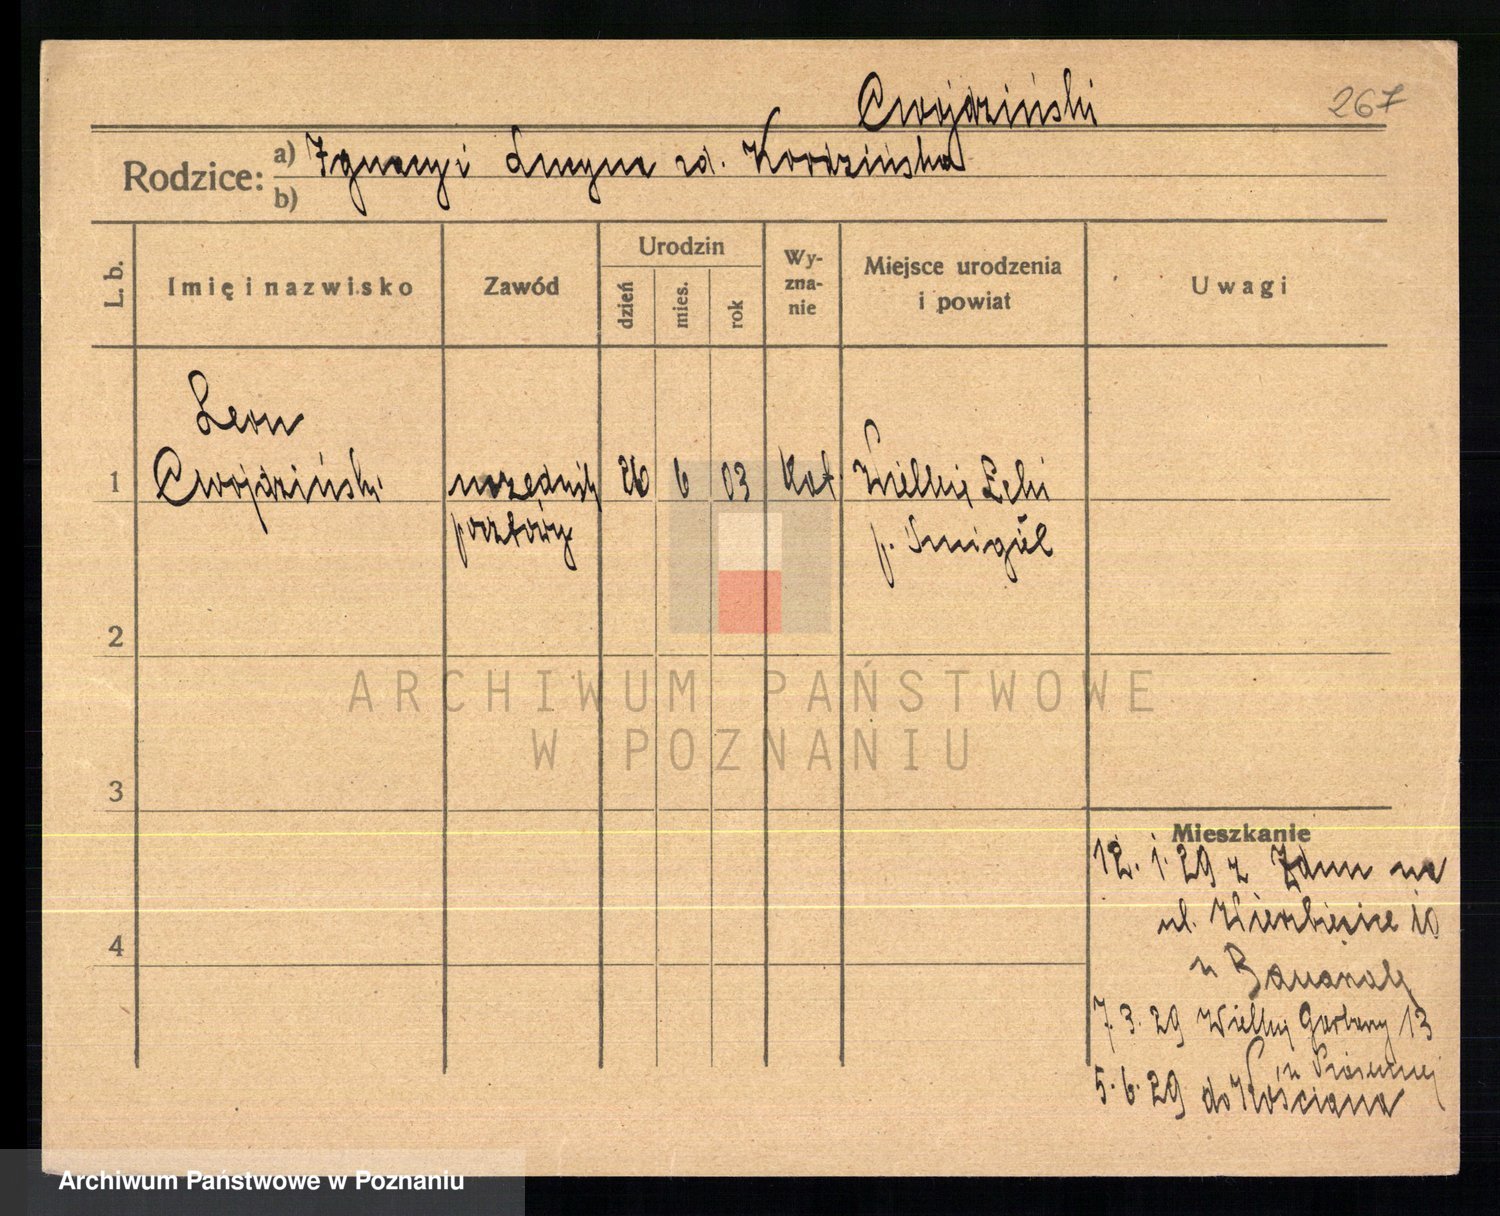 Cwojdziński
267
Rodzice: a) Ignacy i Lucyna zd. Kordzińska
b)
L. b.
Imię i nazwisko
Zawód
Urodzin
dzień
mies.
rok
Wy-
zna-
nie
Miejsce urodzenia
i powiat
Uwagi
Leon
1 Cwojdziński urzędnik 26 6 03 kat. Wielkie Łęki
pocztowy p. Śmigiel
2
3
4
Mieszkanie
12. 1. 29 z Zdun na
ul. Wierzbięcice 10
u
7. 3. 29 Wielkie Garbary 13
u
5. 6. 29 do Kościana
ARCHIWUM PAŃSTWOWE
W POZNANIU
Archiwum Państwowe w Poznaniu